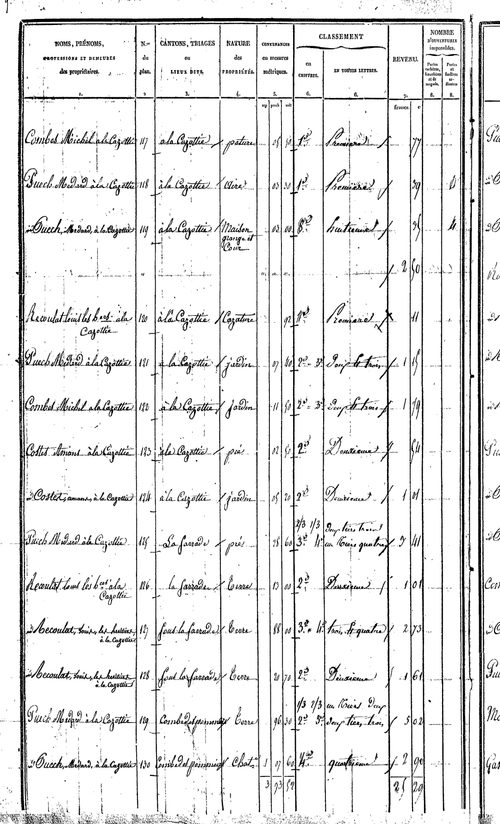 NOMS, PRÉNOMS, PROFESSIONS ET DEMEURES des propriétaires. | N.os du plan. | CANTONS, TRIAGES ou LIEUX DITS. | NATURE des PROPRIÉTÉS. | CONTENANCES en mesures métriques. | CLASSEMENT en chiffres. | en toutes lettres. | REVENU. | NOMBRE D'OUVERTURES imposables.
1. 2. 3. 4. 5. 6. 6. 7. 8. 8.
francs c
Combes Michel a la Cazottie 117 a la Cazottie pature 25 50 1re Première 77
Puech Médard à la Cazottie 118 à la Cazottie 03 30 1re Première 39
Puech, Médard, à la Cazottie 119 à la Cazottie Maison grange et Cour 03 00 8e huitieme 35
2 50
Recoulat Louis les hers a la Cazottie 120 à la Cazottie Cazature 92 1re Première 11
Puech Médard à la Cazottie 121 à la Cazottie jardin 07 60 2e = 3e Deux et trois 1 15
Combes Michel a la Cazottie 122 à la Cazottie Jardin 11 50 2e = 3e deux et trois 1 79
Costes Amans à la Cazottie 123 à la Cazottie prés 02 50 2e Deuxieme 54
Costes, amans, à la Cazottie 124 à la Cazottie jardin 05 20 2e Deuxieme 1 01
2/3 1/3 deux tiers trois
Puech Médard à la Cazottie 125 La farrade prés 28 60 3e 4e un tiers quatre 3 41
Recoulat Louis les hers a la Cazottie 126 la farrade Terre 13 00 2e Deuxieme 1 01
Recoulat, Louis, les héritiers, à la Cazottie 127 sous la farrade Terre 88 00 3e = 4e trois et quatre 2 73
Recoulat, Louis, les héritiers, à la Cazottie 128 sous la farrade Terre 20 70 2e Deuxieme 1 61
1/3 2/3 un tiers deux
Puech Médard à la Cazottie 129 Combe des pommiers Terre 96 30 2e 3e deux tiers trois 5 02
Puech, Médard, à la Cazottie 130 Combe des pommiers Chat. 1 07 60 4e quatrieme 2 90
3 73 52 25 29